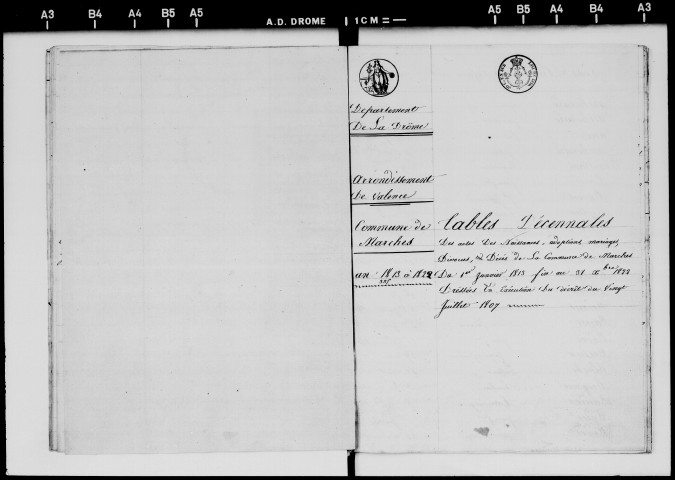 A3 B4 A4 B5 A5 A.D. DROME 1 CM A5 B5 A4 B4 A3
Département
De La Drôme
Arrondissement
De Valence
Commune de
Marches
an 1813 à 1822
Tables Décennales
Des actes Des Naissances, adoptions, mariages,
Divorces, & Décès de La Commune de Marches
Du 1er Janvier 1813 fin au 31 Xbre 1822
Dréssées En éxécution Du décrêt du Vingt
Juillet 1807